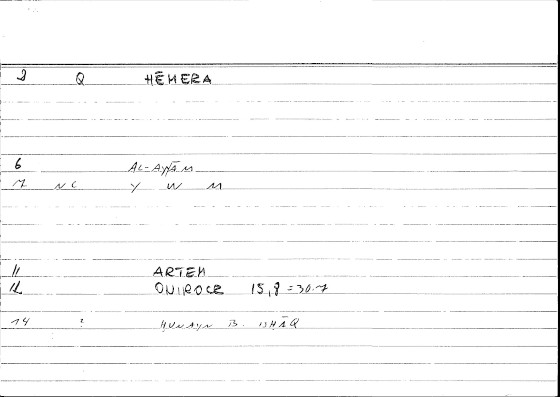 2 Q HĒMERA
6 AL-AYYĀM
7 NC Y W M
11 ARTEM
12 ONIROCR 15,8 = 30.7
14 ? ḤUNAYN B. ISḤĀQ